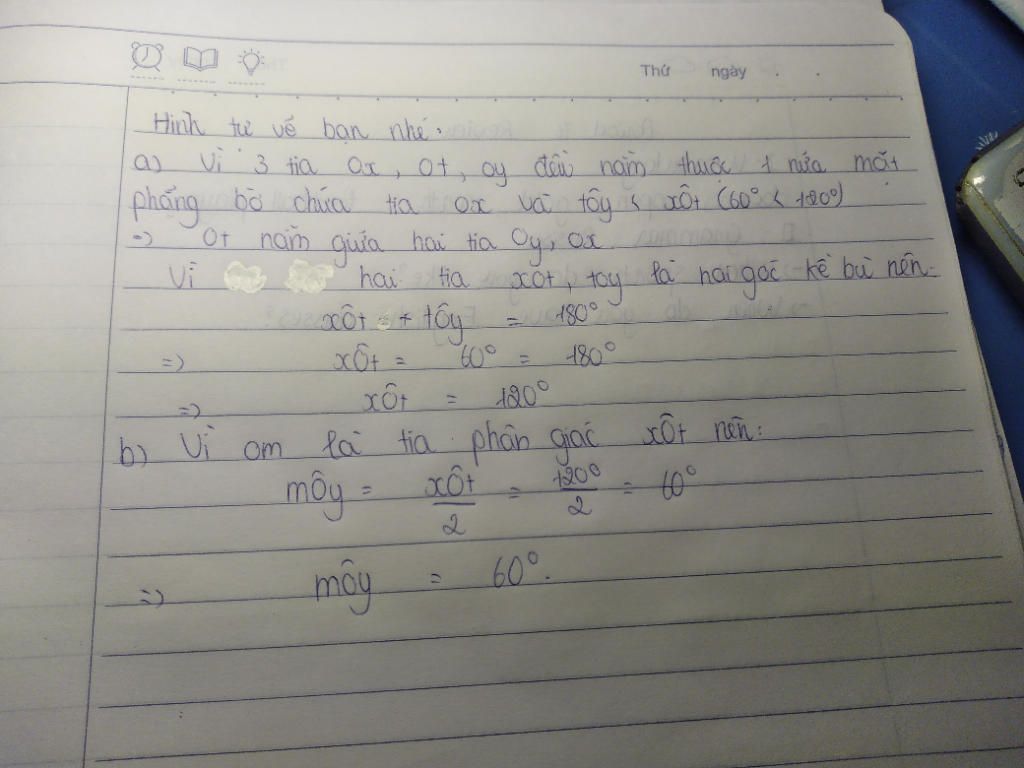 Thứ ngày . .
Hình tự vẽ bạn nhé.
a) Vì 3 tia Ox, Ot, Oy đều nằm thuộc 1 nửa mặt
phẳng bờ chứa tia Ox và tÔy < xÔt (60° < 120°)
=) Ot nằm giữa hai tia Oy, Ox
Vì hai tia xÔt, tOy là hai góc kề bù nên:
xÔt + tÔy = 180°
=) xÔt = 60° = 180°
=) xÔt = 120°
b) Vì om là tia phân giác xÔt nên:
mÔy = xÔt/2 = 120°/2 = 60°
=) mÔy = 60°.